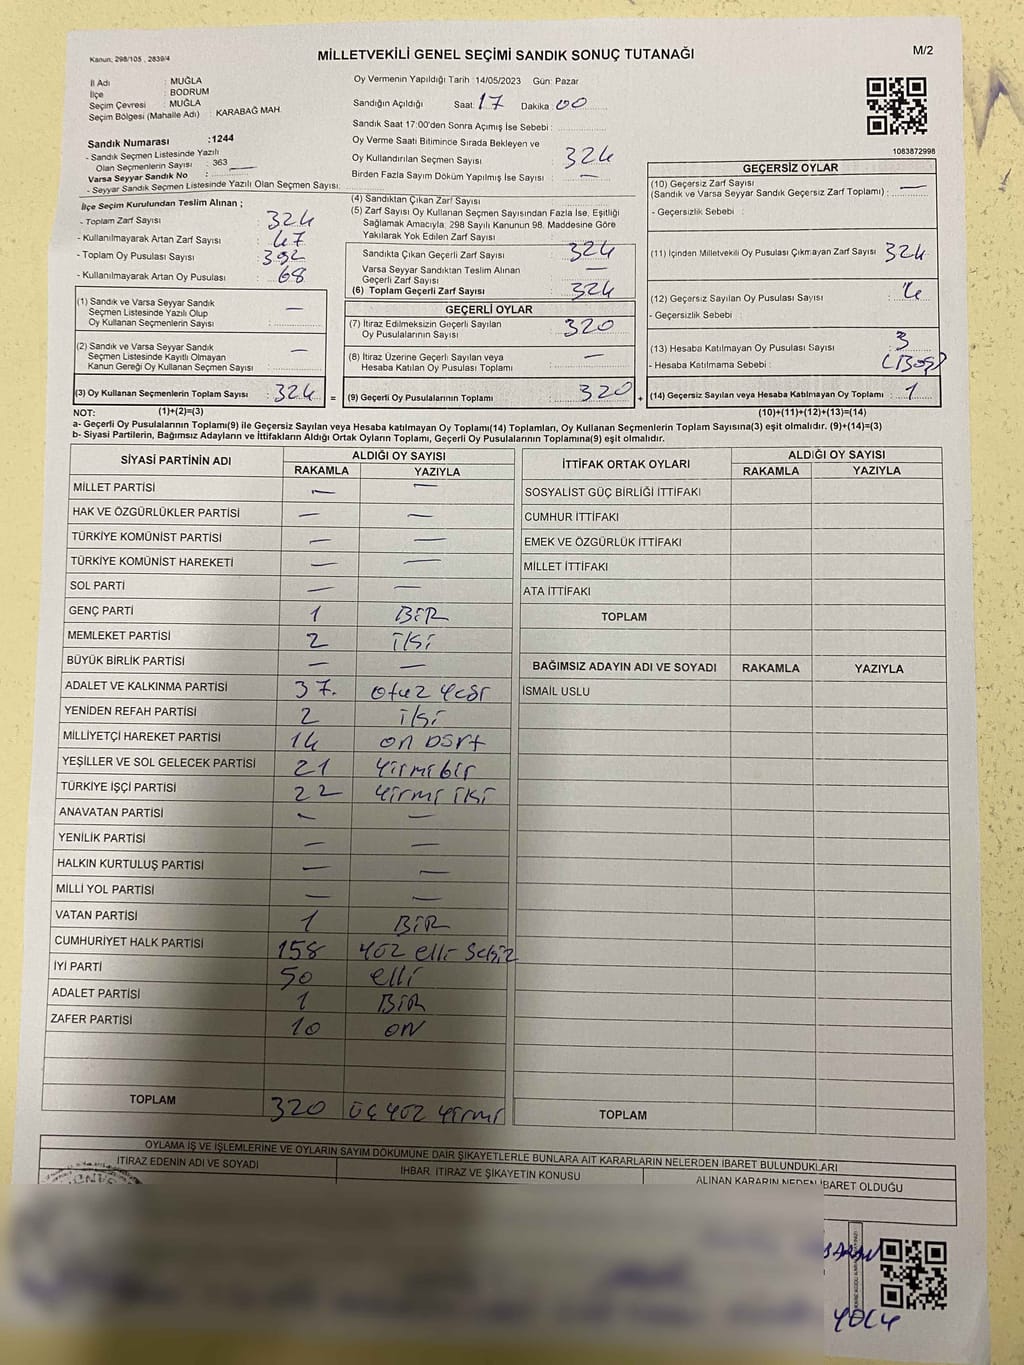 Kanun: 298/105 , 2839/4
MİLLETVEKİLİ GENEL SEÇİMİ SANDIK SONUÇ TUTANAĞI
M/2
İl Adı : MUĞLA
İlçe : BODRUM
Seçim Çevresi : MUĞLA
Seçim Bölgesi (Mahalle Adı) : KARABAĞ MAH.
Oy Vermenin Yapıldığı Tarih : 14/05/2023 Gün: Pazar
Sandığın Açıldığı Saat: 17 Dakika: 00
Sandık Saat 17:00'den Sonra Açımış İse Sebebi :
Oy Verme Saati Bitiminde Sırada Bekleyen ve
Oy Kullandırılan Seçmen Sayısı 324
Birden Fazla Sayım Döküm Yapılmış İse Sayısı : —
1083872998
Sandık Numarası :1244
- Sandık Seçmen Listesinde Yazılı
Olan Seçmenlerin Sayısı : 363
Varsa Seyyar Sandık No :
- Seyyar Sandık Seçmen Listesinde Yazılı Olan Seçmen Sayısı:
İlçe Seçim Kurulundan Teslim Alınan ;
- Toplam Zarf Sayısı : 324
- Kullanılmayarak Artan Zarf Sayısı : 47
- Toplam Oy Pusulası Sayısı : 392
- Kullanılmayarak Artan Oy Pusulası : 68
(1) Sandık ve Varsa Seyyar Sandık
Seçmen Listesinde Yazılı Olup
Oy Kullanan Seçmenlerin Sayısı : —
(2) Sandık ve Varsa Seyyar Sandık
Seçmen Listesinde Kayıtlı Olmayan
Kanun Gereği Oy Kullanan Seçmen Sayısı : —
(3) Oy Kullanan Seçmenlerin Toplam Sayısı : 324 =
(4) Sandıktan Çıkan Zarf Sayısı :
(5) Zarf Sayısı Oy Kullanan Seçmen Sayısından Fazla İse, Eşitliği
Sağlamak Amacıyla, 298 Sayılı Kanunun 98. Maddesine Göre
Yakılarak Yok Edilen Zarf Sayısı :
Sandıkta Çıkan Geçerli Zarf Sayısı : 324
Varsa Seyyar Sandıktan Teslim Alınan
Geçerli Zarf Sayısı : —
(6) Toplam Geçerli Zarf Sayısı : 324
GEÇERLİ OYLAR
(7) İtiraz Edilmeksizin Geçerli Sayılan
Oy Pusulalarının Sayısı : 320
(8) İtiraz Üzerine Geçerli Sayılan veya
Hesaba Katılan Oy Pusulası Toplamı : —
(9) Geçerli Oy Pusulalarının Toplamı : 320 +
GEÇERSİZ OYLAR
(10) Geçersiz Zarf Sayısı
(Sandık ve Varsa Seyyar Sandık Geçersiz Zarf Toplamı) : —
- Geçersizlik Sebebi :
(11) İçinden Milletvekili Oy Pusulası Çıkmayan Zarf Sayısı 324
(12) Geçersiz Sayılan Oy Pusulası Sayısı : 4
- Geçersizlik Sebebi :
(13) Hesaba Katılmayan Oy Pusulası Sayısı : 3
- Hesaba Katılmama Sebebi : (Boş)
(14) Geçersiz Sayılan veya Hesaba Katılmayan Oy Toplamı : 1
NOT: (1)+(2)=(3) (10)+(11)+(12)+(13)=(14)
a- Geçerli Oy Pusulalarının Toplamı(9) ile Geçersiz Sayılan veya Hesaba katılmayan Oy Toplamı(14) Toplamları, Oy Kullanan Seçmenlerin Toplam Sayısına(3) eşit olmalıdır. (9)+(14)=(3)
b- Siyasi Partilerin, Bağımsız Adayların ve İttifakların Aldığı Ortak Oyların Toplamı, Geçerli Oy Pusulalarının Toplamına(9) eşit olmalıdır.
SİYASİ PARTİNİN ADI ALDIĞI OY SAYISI
RAKAMLA YAZIYLA
MİLLET PARTİSİ — —
HAK VE ÖZGÜRLÜKLER PARTİSİ — —
TÜRKİYE KOMÜNİST PARTİSİ — —
TÜRKİYE KOMÜNİST HAREKETİ — —
SOL PARTİ — —
GENÇ PARTİ 1 BİR
MEMLEKET PARTİSİ 2 iki
BÜYÜK BİRLİK PARTİSİ — —
ADALET VE KALKINMA PARTİSİ 37. otuz yedi
YENİDEN REFAH PARTİSİ 2 iki
MİLLİYETÇİ HAREKET PARTİSİ 14 on Dört
YEŞİLLER VE SOL GELECEK PARTİSİ 21 yirmi bir
TÜRKİYE İŞÇİ PARTİSİ 22 yirmi iki
ANAVATAN PARTİSİ — —
YENİLİK PARTİSİ — —
HALKIN KURTULUŞ PARTİSİ — —
MİLLİ YOL PARTİSİ — —
VATAN PARTİSİ 1 BİR
CUMHURİYET HALK PARTİSİ 158 yüz elli sekiz
İYİ PARTİ 50 elli
ADALET PARTİSİ 1 BİR
ZAFER PARTİSİ 10 ON
TOPLAM 320 üç yüz yirmi
İTTİFAK ORTAK OYLARI ALDIĞI OY SAYISI
RAKAMLA YAZIYLA
SOSYALİST GÜÇ BİRLİĞİ İTTİFAKI
CUMHUR İTTİFAKI
EMEK VE ÖZGÜRLÜK İTTİFAKI
MİLLET İTTİFAKI
ATA İTTİFAKI
TOPLAM
BAĞIMSIZ ADAYIN ADI VE SOYADI RAKAMLA YAZIYLA
İSMAİL USLU
TOPLAM
OYLAMA İŞ VE İŞLEMLERİNE VE OYLARIN SAYIM DÖKÜMÜNE DAİR ŞİKAYETLERLE BUNLARA AİT KARARLARIN NELERDEN İBARET BULUNDUKLARI
İTİRAZ EDENİN ADI VE SOYADI İHBAR, İTİRAZ VE ŞİKAYETİN KONUSU ALINAN KARARIN NEDEN İBARET OLDUĞU